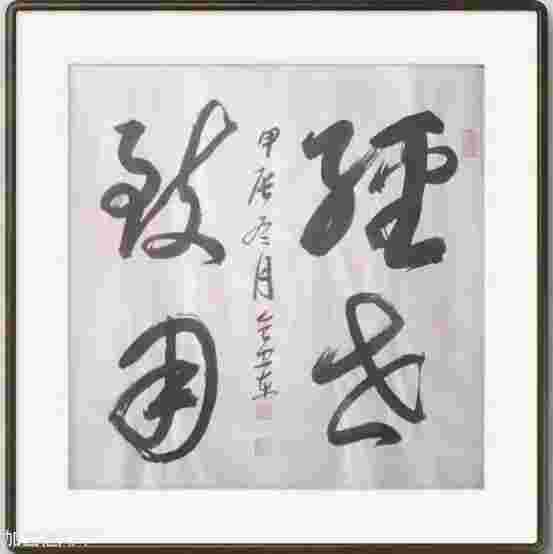 經世
致用
甲辰冬月